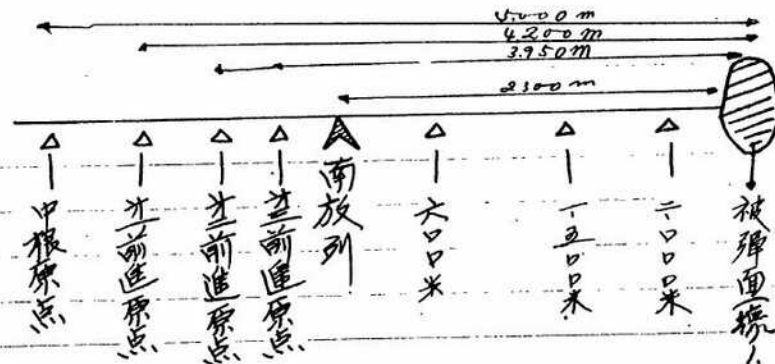 5.000m
4200m
3.950m
2300m
中根原点
才一前進原点
才二前進原点
才三前進原点
南放列
六〇〇米
一.五〇〇米
二.〇〇〇米
被弾面標